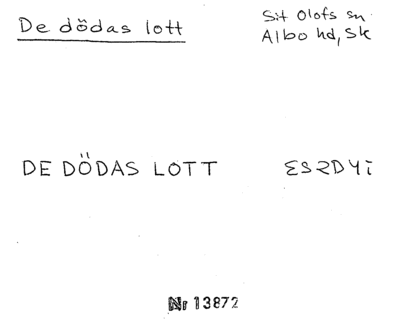 De dödas lott
S:t Olofs sn
Albo hd, Sk
DE DÖDAS LOTT ESRDYi
Nr 13872